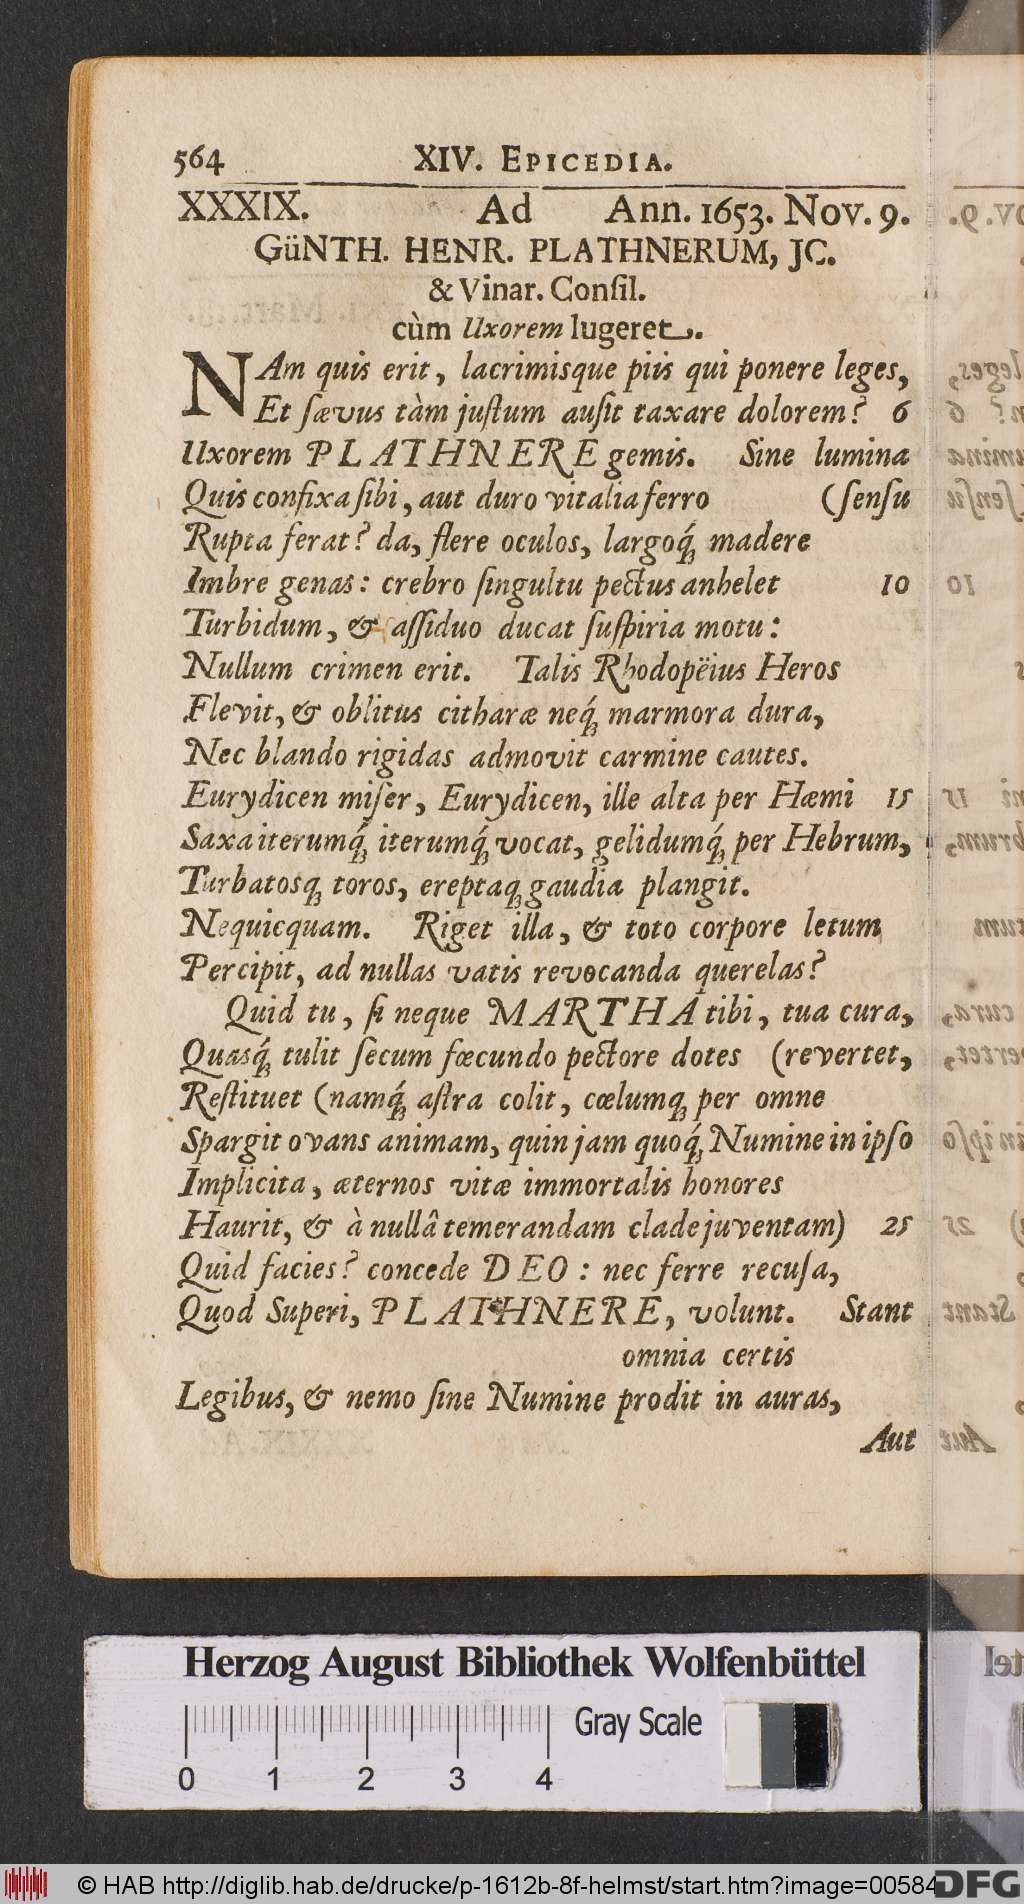 564 XIV. EPICEDIA.
XXXIX. Ad Ann. 1653. Nov. 9.
GüNTH. HENR. PLATHNERUM, JC.
& Vinar. Conſil.
cùm Uxorem lugeret.
NAm quis erit, lacrimisque piis qui ponere leges,
Et ſævus tàm juſtum auſit taxare dolorem? 6
Uxorem PLATHNERE gemis. Sine lumina
Quis confixa ſibi, aut duro vitalia ferro (ſenſu
Rupta ferat? da, flere oculos, largoq́; madere
Imbre genas: crebro ſingultu pectus anhelet 10
Turbidum, & aſſiduo ducat ſuſpiria motu:
Nullum crimen erit. Talis Rhodopëius Heros
Flevit, & oblitus citharæ neq́; marmora dura,
Nec blando rigidas admovit carmine cautes.
Eurydicen miſer, Eurydicen, ille alta per Hæmi 15
Saxa iterumq́; iterumq́; vocat, gelidumq́; per Hebrum,
Turbatosq; toros, ereptaq; gaudia plangit.
Nequicquam. Riget illa, & toto corpore letum
Percipit, ad nullas vatis revocanda querelas?
Quid tu, ſi neque MARTHA tibi, tua cura,
Quasq́; tulit ſecum fœcundo pectore dotes (revertet,
Reſtituet (namq́; aſtra colit, cœlumq; per omne
Spargit ovans animam, quin jam quoq́; Numine in ipſo
Implicita, æternos vitæ immortalis honores
Haurit, & à nullâ temerandam clade juventam) 25
Quid facies? concede DEO: nec ferre recuſa,
Quod Superi, PLATHNERE, volunt. Stant
omnia certis
Legibus, & nemo ſine Numine prodit in auras,
Aut
Herzog August Bibliothek Wolfenbüttel
Gray Scale
0 1 2 3 4
© HAB http://diglib.hab.de/drucke/p-1612b-8f-helmst/start.htm?image=00584
DFG